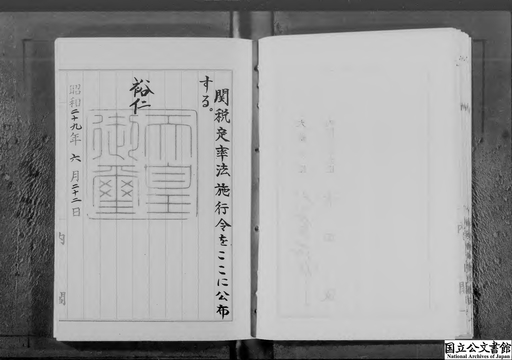 関税定率法施行令をここに公布
する。
裕仁
天皇
御璽
昭和二十九年六月二十二日
国立公文書館
National Archives of Japan